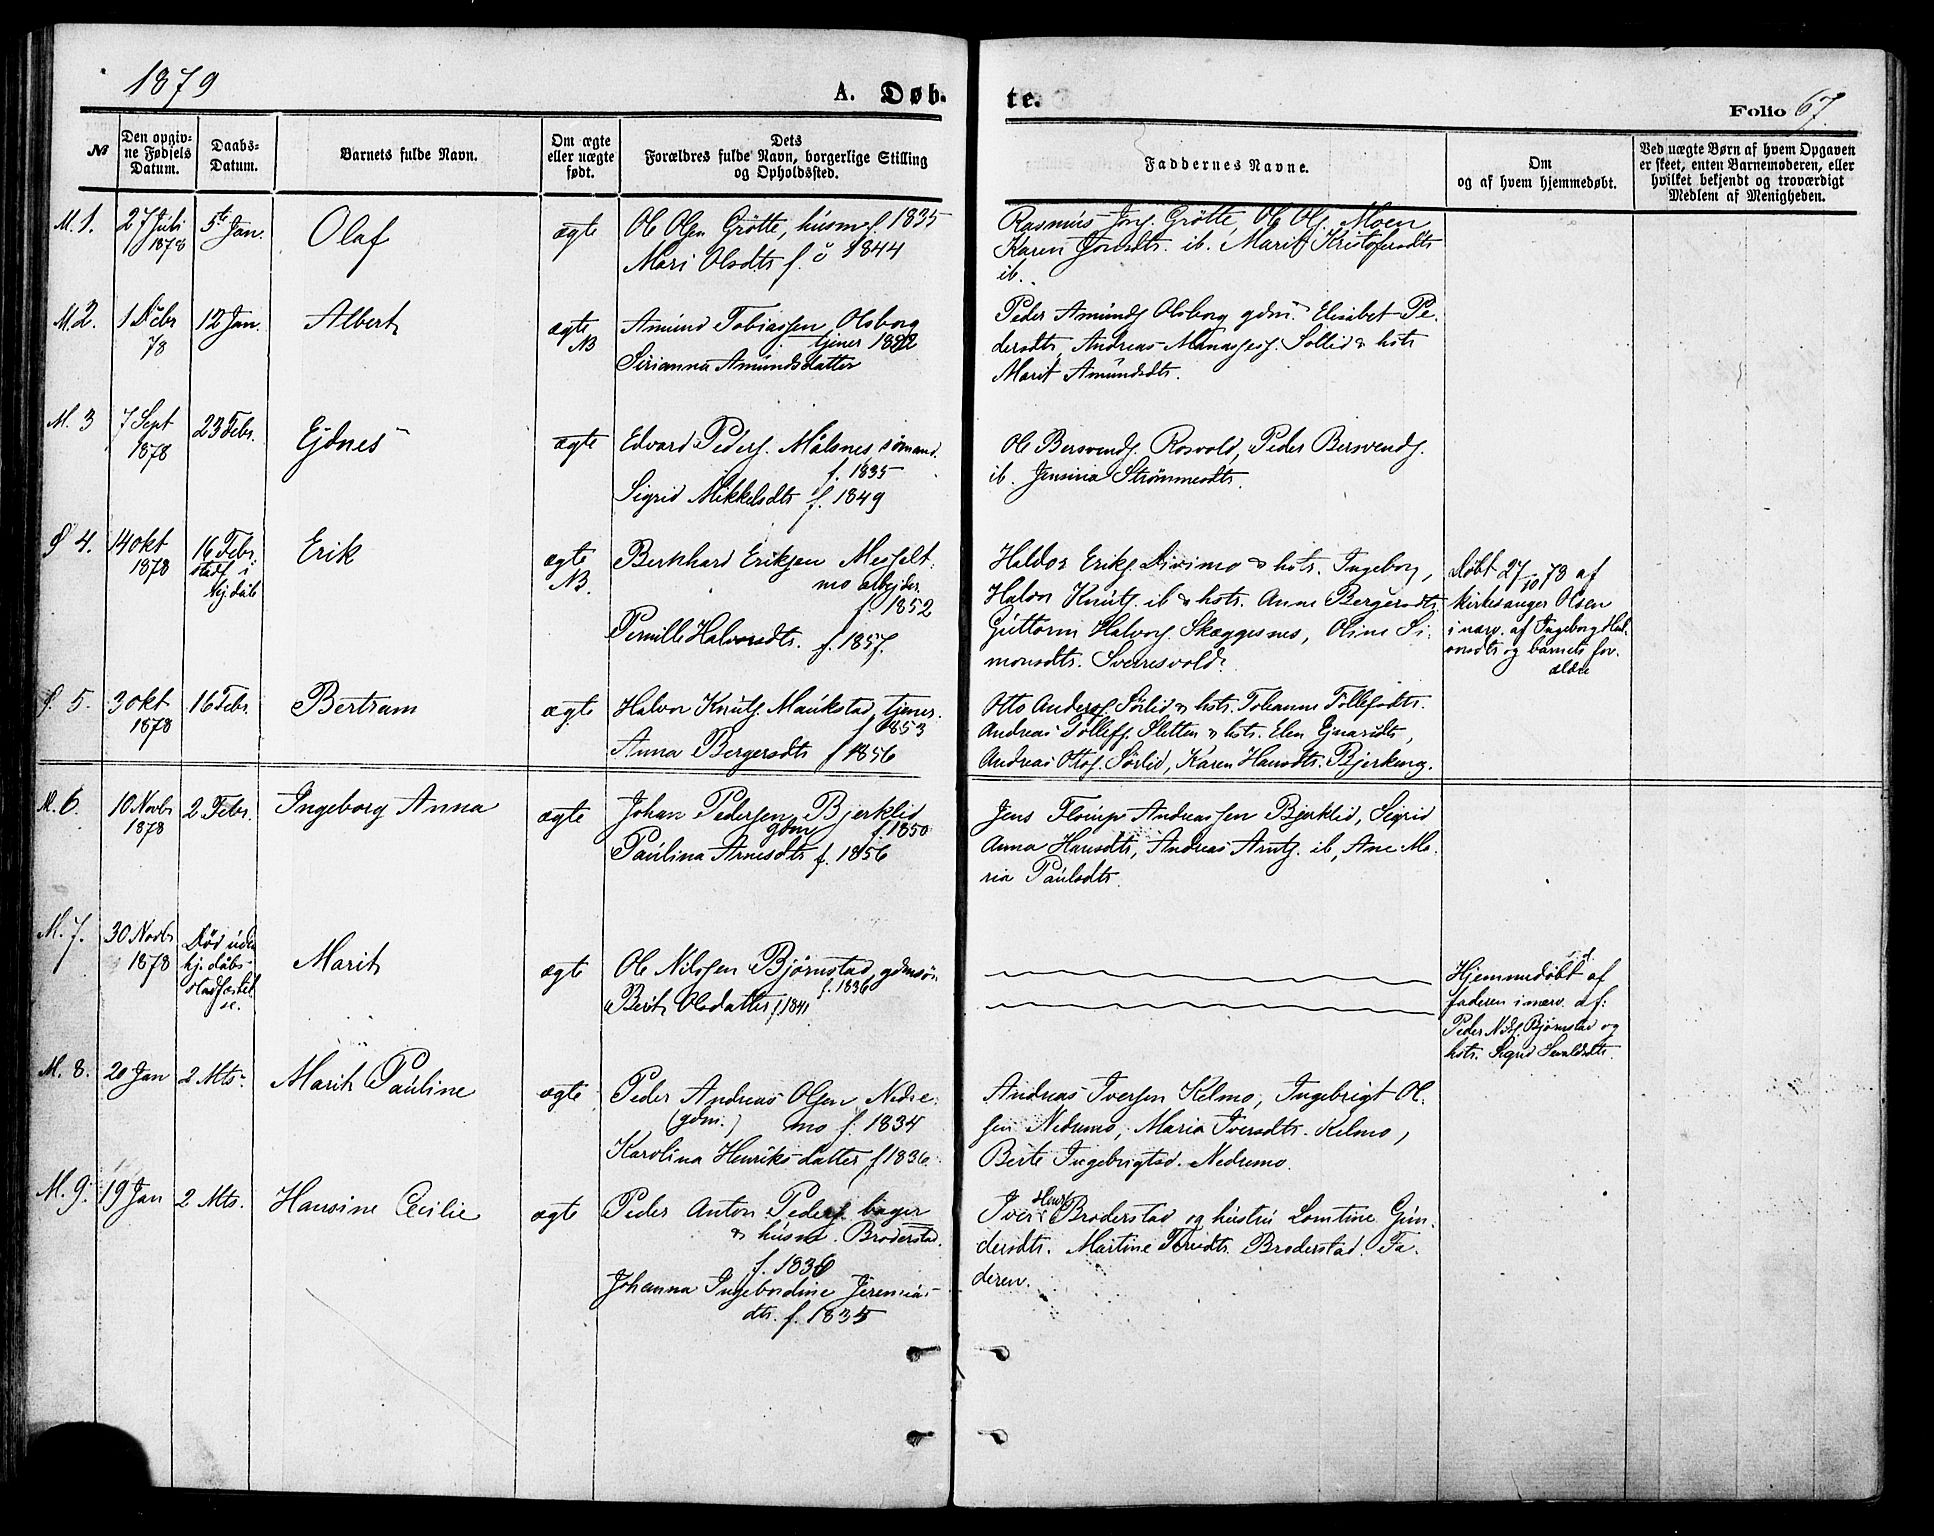 1879
A. Døb-
te.
Folio 67.
№
Den opgiv-
ne Fødsels
Datum.
Daabs-
Datum.
Barnets fulde Navn.
Om ægte
eller uægte
født.
Dets
Forældres fulde Navn, borgerlige Stilling
og Opholdssted.
Faddernes Navne.
Om
og af hvem hjemmedøbt.
Ved uægte Børn af hvem Opgaven
er skeet, enten Barnemoderen, eller
hvilket bekjendt og troværdigt
Medlem af Menigheden.
M. 1.
27 Juli
1878
5te Jan.
Olaf
ægte
Ole Olsen Grøtte, husm. f. 1835
Mari Olsdtr f. 1844
Rasmus Jons. Grøtte, Ole Ols. Moen
Karen Jonsdtr. ib. Marit Kristofersdtr
ib.
M. 2.
1 Debr
78
12 Jan.
Albert
ægte
NB
Amund Tobiassen Olsborg
tjener 1852
Sirianna Amundsdatter
Peder Amunds. Olsborg gdm. Elisabet Pe-
dersdtr, Andreas Manasses. Sollid & hstr
Marit Amundsdtr.
M. 3
7 Sept
1878
23 Febr.
Ejdnes
ægte
Edvard Peders. Målsnes, sømand.
f. 1835
Sigrid Mikkelsdtr f. 1849
Ole Bersvends. Rosvold, Peder Bersvends.
ib. Jensina Strømmesdtr.
S 4.
14 okt
1878
16 Febr.
stadf. i
hj.dåb
Erik
ægte
NB.
Bernhard Eriksen Messelt-
mo arbejder.
f. 1852
Pernille Halvorsdtr. f. 1857.
Haldor Eriks. Divimo & hstr. Ingeborg,
Halvor Knuts. ib & hstr. Anne Bergersdtr.
Guttorm Halvors. Skæggesnes, Oline Si-
monsdtr. Sverresvold.
Døbt 27/10 78 af
kirkesanger Olsen
i nærv. af Ingeborg Hal-
vorsdtr og barnets for-
ældre
S. 5.
3 okt
1878
16 Febr.
Bertram
ægte
Halvor Knuts. Maukstad, tjener.
f. 1853
Anna Bergersdtr f 1856
Otto Anders. Sørlid & hstr. Johanne Tollefsdtr.
Andreas Tollefs. Sletten & hstr. Elen Ejnarsdtr,
Andreas Ottos. Sørlid, Karen Hansdtr. Bjerkeng.
M. 6.
10 Novbr
1878
2 Febr.
Ingeborg Anna
ægte
Johan Pedersen Bjerklid
gdm f. 1850
Paulina Arnesdtr f. 1856
Jens Flemp Andreassen Bjerklid, Sigrid
Anna Hansdtr, Andreas Arnts. ib, Ane Ma-
ria Paulsdtr.
M. 7.
30 Novbr
1878
Død uden
hj.dåbs-
stadfæstel
se.
Marit
ægte
Ole Nilssen Bjørnstad, gdmsøn
f. 1836
Berit Olsdatter f. 1841
Hjemmedøbt s.d. af
faderen i nærv. af:
Peder Nils. Bjørnstad og
hstr. Sigrid Sevaldsdtr.
M. 8.
20 Jan
2 Mts.
Marit Pauline
ægte
Peder Andreas Olsen Nedre-
(gdm.) mo f. 1834
Karolina Henriksdatter f 1836
Andreas Iversen Kelmo, Ingebrigt Ol-
sen Nedremo, Maria Iversdtr. Kelmo,
Berte Ingebrigtsd. Nedremo.
M. 9.
19 Jan
2 Mts.
Hansine Cecilie
ægte
Peder Anton Peders. bager
& husm. Broderstad.
f. 1836
Johanna Ingebordine Jeremias-
dtr. f. 1835
Iver Henr. Broderstad og hustru Lomtine Gun-
dersdtr. Martine Torsdtr. Broderstad. Fa-
deren.